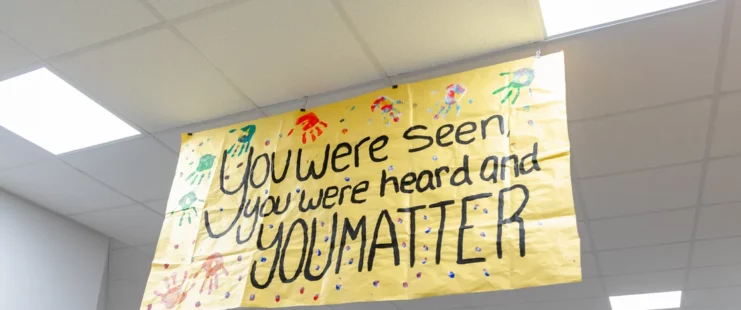 You were seen,
you were heard and
YOU MATTER